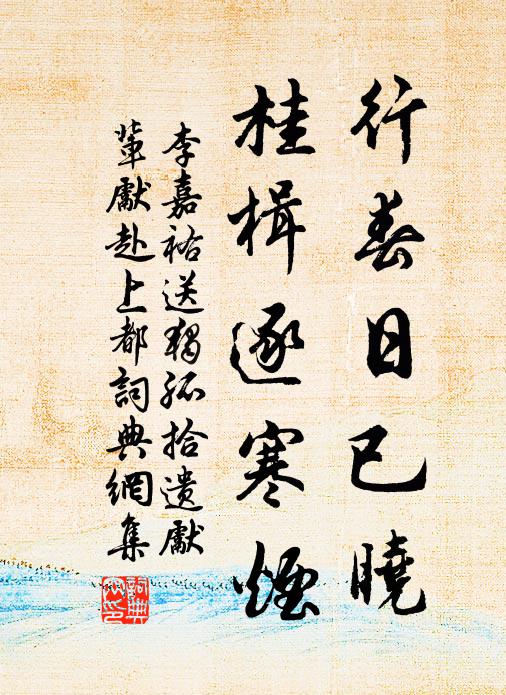 行春日已曉
桂楫逐寒煙
李嘉祐送獨孤拾遺獻
輦獻赴上都詞典網集